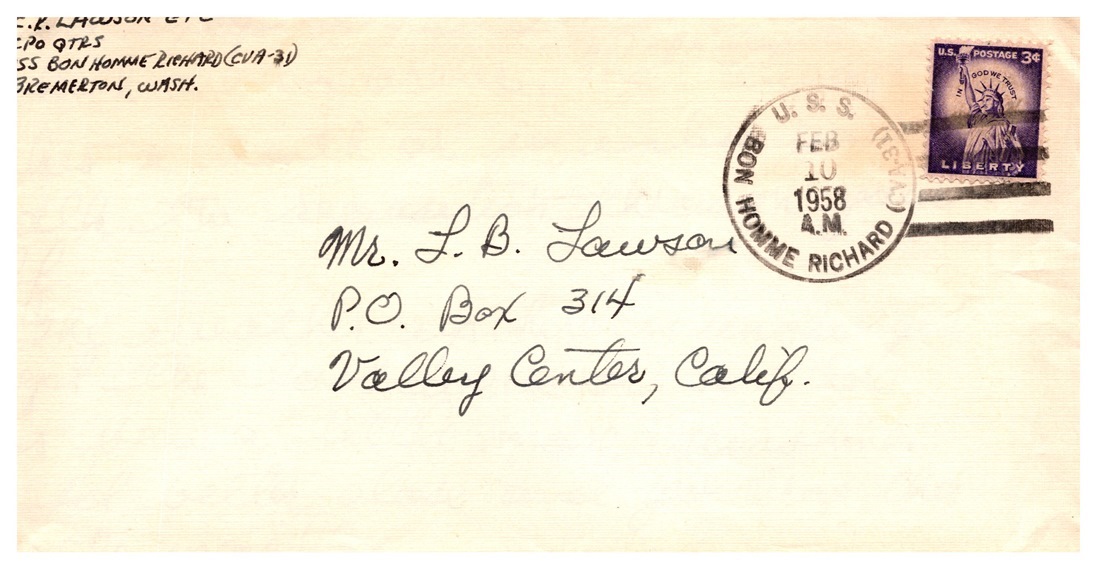 LAWSON ETC
CPO QTRS
SS BON HOMME RICHARD (CVA-31)
BREMERTON, WASH.
U.S. POSTAGE 3¢
IN GOD WE TRUST
LIBERTY
U.S.S.
BON HOMME RICHARD (CVA-31)
FEB
10
1958
A.M.
Mr. L. B. Lawson
P.O. Box 314
Valley Center, Calif.